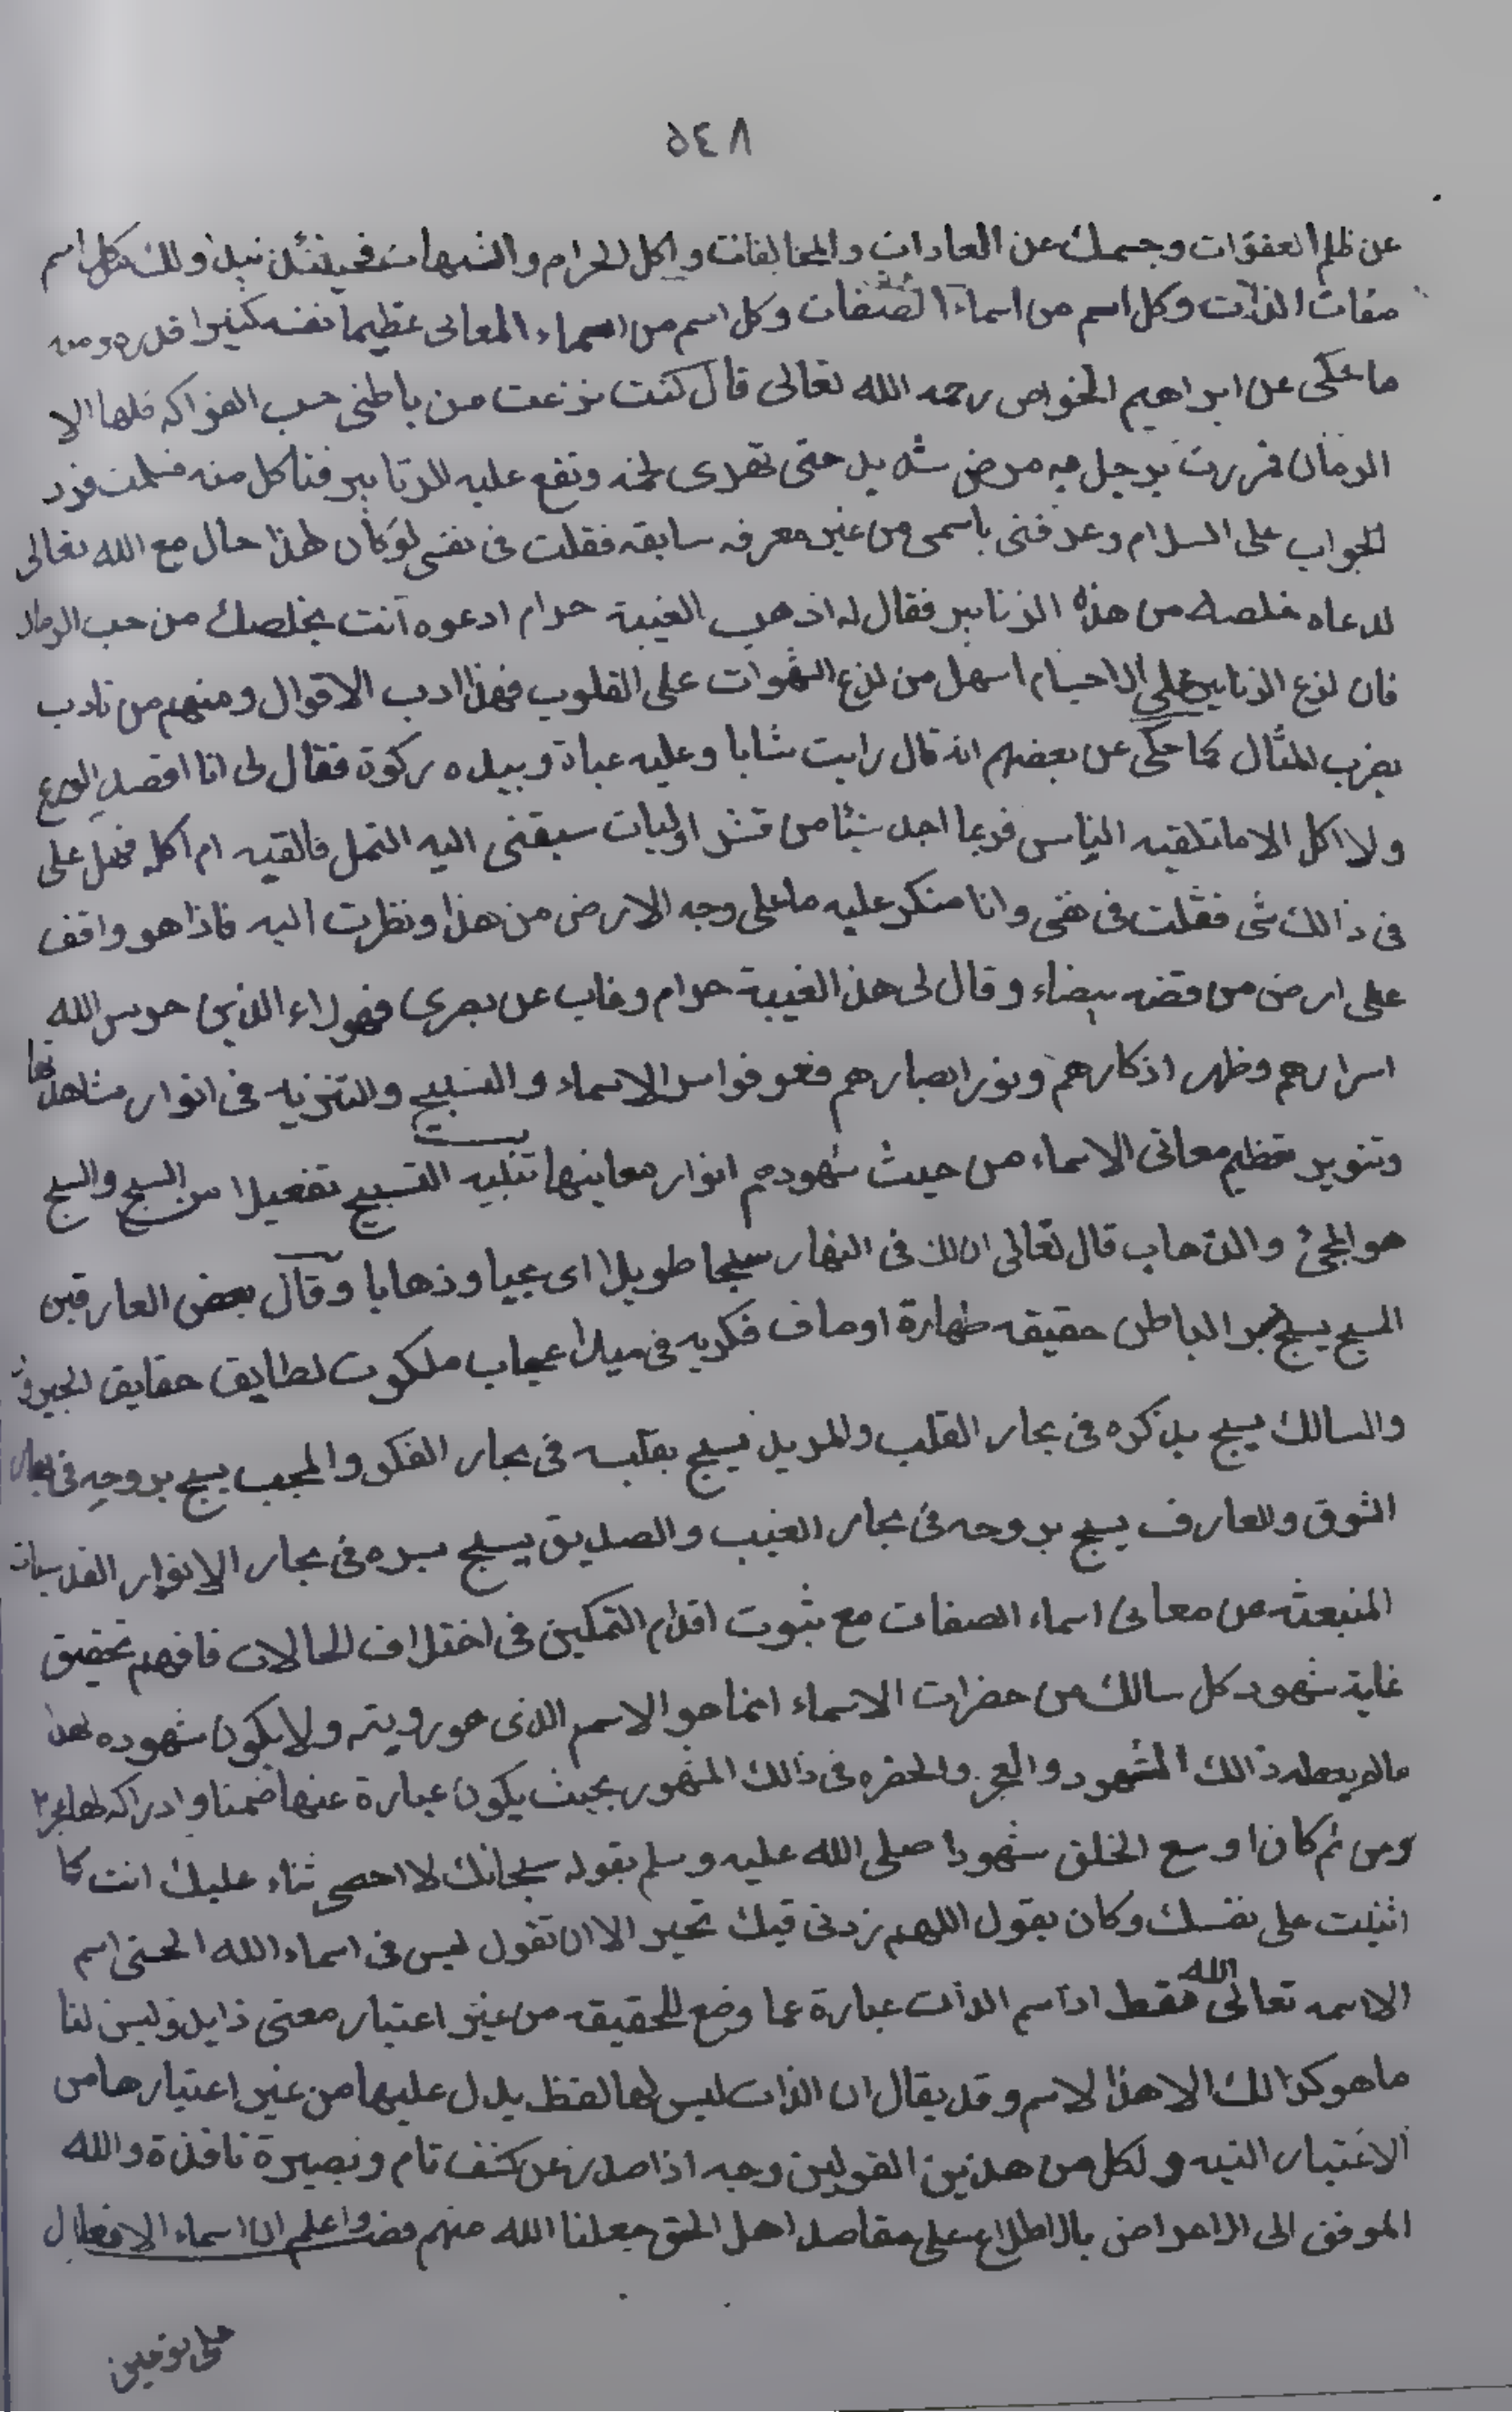 ٥٤٨
عن ظلم العقوات وجسمك عن العادات والمخالفات واكل الحرام والشبهات فحينئذ نبدؤلك بكل اسم
صفات الذات وكل اسم من اسماء الصفات وكل اسم من اسماء المعانى عظيما نفسه كثيرا قدره ومنه
ما حكى عن ابراهيم الخواص رحمه الله تعالى قال كنت نزعت من باطنى حب الفواكه كلها الا
الرمان فمررت برجل به مرض شديد حتى تهرى لحمه وتقع عليه الزنابير فتاكل منه فسلمت فرد
الجواب على السلام وعرفنى باسمى من غير معرفه سابقه فقلت فى نفسى لو كان لهذا حال مع الله تعالى
لدعاه خلصه من هذه الزنابير فقال له اذهب الغيبة حرام ادعوه انت يخلصك من حب الرمان
فان لزع الزنابير على الاجسام اسهل من لزع الشهوات على القلوب فهذا ادب الاقوال ومنهم من تادب
بضرب المثال كما حكى عن بعضهم انه قال رايت شابا وعليه عباة وبيده ركوة فقال لى انا اقصد الورع
ولا اكل الا ما تلقيه الناس فربما اجد شئا من قشر اولبات سبقنى اليه النمل فالقيه ام اكله فهل على
فى ذالك شى فقلت فى نفسى وانا منكر عليه ما على وجه الارض من هذا ونظرت اليه فاذا هو واقف
على ارض من فضه بيضاء وقال لى هذا الغيبة حرام وغاب عن بصرى فهولاء الذين حرس الله
اسرارهم وطهر اذكارهم ونور ابصارهم فعرفوا سر الاسماء والتسبيح والتنزيه فى انوار مشاهدتها
وتنوير تعظيم معانى الاسماء من حيث شهودهم انوار معاينها تنبيه التسبيح تفعيلا من السبح والسبح
هو المجئ والذهاب قال تعالى ان لك فى النهار سبحا طويلا اى مجيا وذهابا وقال بعض العارفين
المسبح يسبح بسر الباطن حقيقه طهارة اوصاف فكريه فى ميدان عجاب ملكوت لطايف حقايق الجبروت
والسالك يسبح بذكره فى بحار القلب والمريد يسبح بقلبه فى بحار الفكر والمحب يسبح بروحه فى بحار
الشوق والعارف يسبح بروحه فى بحار الغيب والصديق يسبح بسره فى بحار الانوار القدسيات
المنبعثه من معانى اسماء الصفات مع ثبوت اقدام التمكين فى اختلاف الحالات فافهم تحقيق
غاية شهود كل سالك من حضرات الاسماء انما هو الاسم الذى هو رويته ولا يكون شهوده لهذا
مالم يعطه ذالك المشهود والعجز والحضره فى ذالك المشهور بحيث يكون عبارة عنها ضمنا وادراكه لها بحر
ومن ثم كان اوسع الخلق شهودا صلى الله عليه وسلم بقوله سبحانك لا احصى ثناء عليك انت كما
اثنيت على نفسك وكان يقول اللهم زدنى فيك تحير الا ان تقول ليس فى اسماء الله الحسنى اسم
الا سمه تعالى الله فقط اذ اسم الذات عبارة عما وضع للحقيقه من غير اعتبار معنى زايد وليس لنا
ما هو كذالك الا هذا لاسم وقد يقال ان الذات ليس لها لفظ يدل عليها من غير اعتبارها من
الاعتبار التيه ولكل من هذين القولين وجه اذا صدر عن كشف تام وبصيرة نافذة والله
الموفق الى الاعراض بالاطلاع على مقاصد اهل الحق جعلنا الله منهم واعلم ان اسماء الافعال
على نوعين